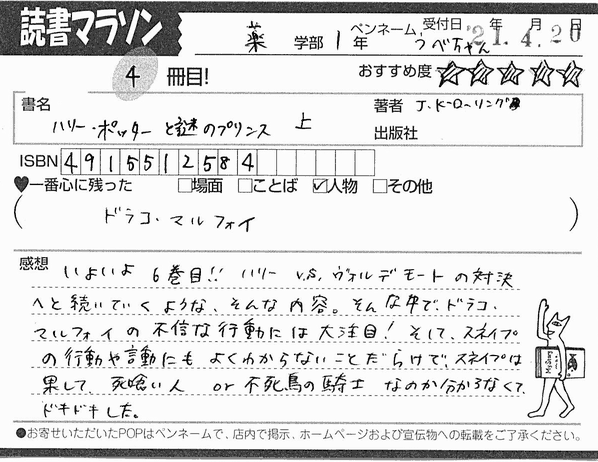 読書マラソン
薬 学部 1 年 ペンネーム うべちゃん 受付日 '21.4.20 年 月 日
4 冊目!
おすすめ度 ☆☆☆☆☆
書名 ハリー・ポッターと謎のプリンス 上
著者 J.K.ローリング
出版社
ISBN 4915512584
♥一番心に残った □場面 □ことば ☑人物 □その他
( ドラコ・マルフォイ )
感想 いよいよ 6巻目!! ハリー v.s. ヴォルデモートの対決
へと続いていくような、そんな内容。そんな中で、ドラコ・
マルフォイの不信な行動には大注目! そして、スネイプ
の行動や言動にもよくわからないことだらけで、スネイプは
果して、死喰い人 or 不死鳥の騎士 なのか分からなくて、
ドキドキした。
●お寄せいただいたPOPはペンネームで、店内で掲示、ホームページおよび宣伝物への転載をご了承ください。